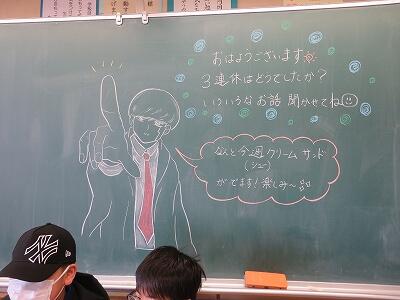 おはようございます
3連休はどうでしたか？
いろいろなお話 聞かせてね
なんと今週クリームサンド
(シュー)
がでます！楽しみ〜